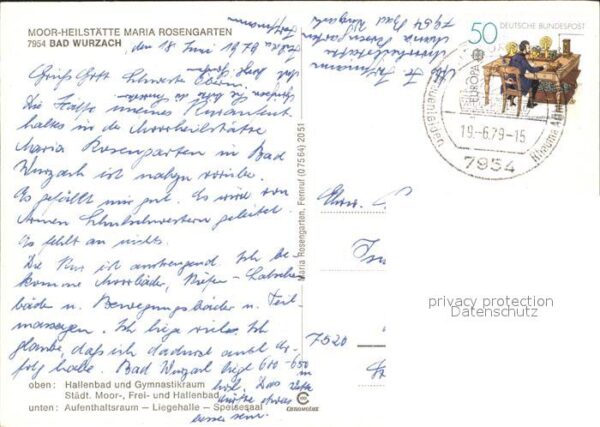 MOOR-HEILSTÄTTE MARIA ROSENGARTEN
7954 BAD WURZACH
den 18. Juni 1979
Grüß Gott
Die Hälfte meines Kuraufent-
haltes in der Moorheilstätte
Maria Rosengarten in Bad
Wurzach ist nahezu vorüber.
Es gefällt mir gut. Es wird von
Armen Schulschwestern geleitet.
Es fehlt an nichts.
Die Kur ist anstrengend. Ich be-
komme Moorbäder, Kiefer-Latschen
bäder u. Bewegungsbäder u. Teil-
massagen. Ich liege viel. Ich
glaube, daß ich dadurch auch Er-
folg habe. Bad Wurzach liegt 610-650 m
hoch. Das
dürfte etwas
besser sein.
oben: Hallenbad und Gymnastikraum
Städt. Moor-, Frei- und Hallenbad
unten: Aufenthaltsraum — Liegehalle — Speisesaal
Maria Rosengarten, Fernruf (07564) 2051
CEKUMCOLOR
Moorheilstätte
Maria Rosengarten
7954 Bad Wurzach
50 DEUTSCHE BUNDESPOST
EUROPA
19.-6.79-15
7954
7520
privacy protection
Datenschutz